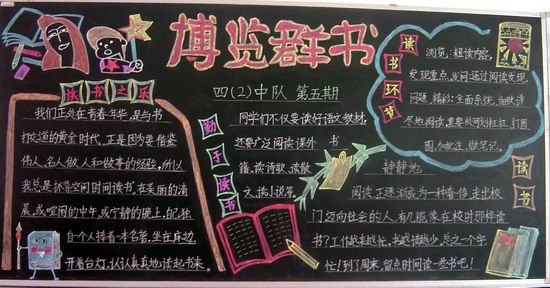 博览群书
四(2)中队 第五期
读书之乐
我们正处在青春年华,是与书
打交道的黄金时代,正是因为要借鉴
伟人,名人做人和做事的经验,所以
我总是抓紧空闲时间读书,在美丽的清
晨,或喧闹的中午,或宁静的晚上,
自个人捧着一本名著,坐在床边,
开着台灯,认认真真地读起书来。
勤于读书
同学们不仅要读好语文教材,
还要广泛阅读课外书
籍,读诗歌,读散
文,读小说等。
读书环节
浏览:粗读内容,
发现重点,发问:通过阅读发现
问题,精彩:全面系统,细致详
尽地阅读,重要处可划杠杠,打圆
圈,加批注,做笔记。
静静地
读书
阅读,正逐渐成为一种奢侈,走出校
门,迈向社会的人,有几能像在校时那样读
书?工作越来越忙,书越读越少,总之一个字:
忙!到了周末,留点时间读一些书吧!